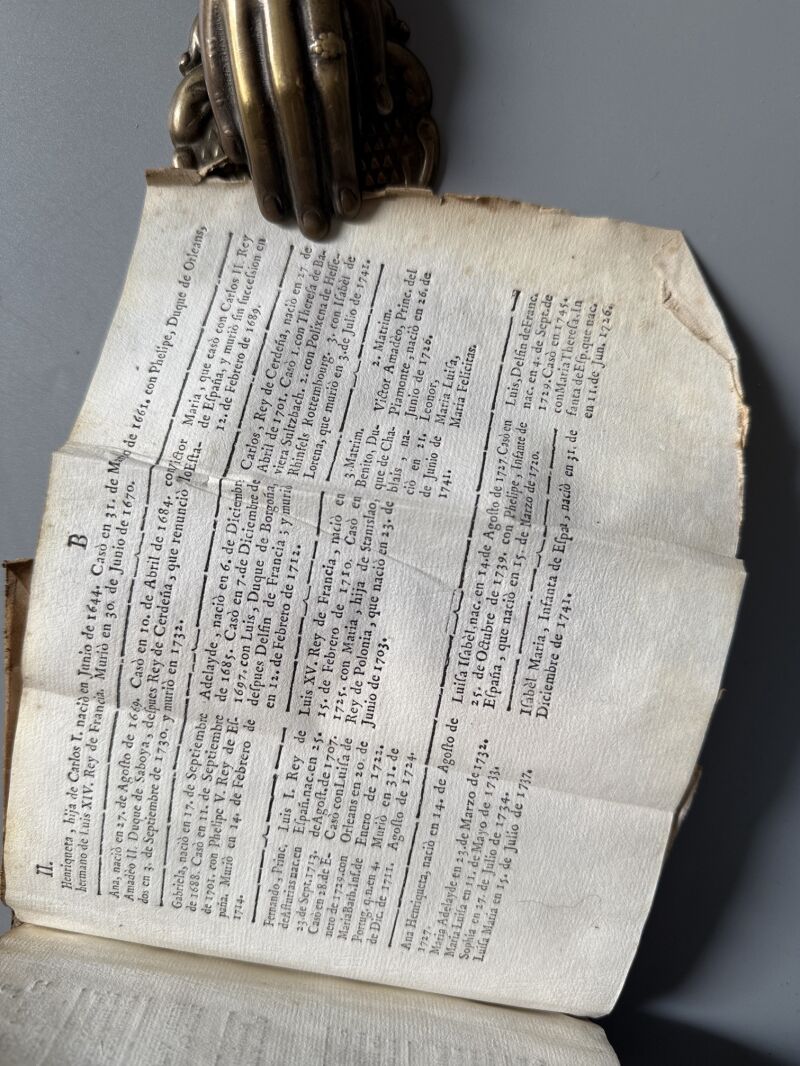 II. B
Henriqueta, hija de Carlos I. nació en Junio de 1644. Casò en 31. de Março de 1661. con Phelipe, Duque de Orleans,
hermano de Luis XIV. Rey de Francia. Murió en 30. de Junio de 1670.
Ana, nació en 27. de Agosto de 1669. Casò en 10. de Abril de 1684. con Victor
Amadeo II. Duque de Saboya, despues Rey de Cerdeña, que renunciò los Esta-
dos en 3. de Septiembre de 1730. y murió en 1732.
Maria, que casò con Carlos II. Rey
de España, y murió sin succession en
12. de Febrero de 1689.
Gabriela, nació en 17. de Septiembre
de 1688. Casò en 11. de Septiembre
de 1701. con Phelipe V. Rey de Es-
paña. Murió en 14. de Febrero de
1714.
Adelayde, nació en 6. de Diciembre
de 1685. Casò en 7. de Diciembre de
1697. con Luis, Duque de Borgoña,
despues Delfin de Francia; y murió
en 12. de Febrero de 1712.
Carlos, Rey de Cerdeña, nació en 27. de
Abril de 1701. Casò 1. con Theresa de Ba-
viera Sultzbach. 2. con Polixena de Hesse-
Rhinfels Rottembourg. 3. con Isabèl de
Lorena, que murió en 3. de Julio de 1741.
Fernando, Princ.
de Asturias nac. en
23. de Sept. 1713.
Casò en 28. de E-
nero de 1729. con
Maria Barb. Inf. de
Portug. q. n. en 4.
de Dic. de 1711.
Luis I. Rey de
Españ. nac. en 25.
de Agost. de 1707.
Casò con Luisa de
Orleans en 20. de
Enero de 1722.
Murió en 31. de
Agosto de 1724.
Luis XV. Rey de Francia, nació en
15. de Febrero de 1710. Casò en
1725. con Maria, hija de Stanislao,
Rey de Polonia, que nació en 23. de
Junio de 1703.
3. Matrim.
Benito, Du-
que de Cha-
blais, na-
ció en 21.
de Junio de
1741.
2. Matrim.
Victor Amadeo, Princ. del
Piamonte, nació en 26. de
Junio de 1726.
Leonor,
Maria Luisa,
Maria Felicitas.
Ana Henriqueta, nació en 14. de Agosto de
1727.
Maria Adelayde en 23. de Marzo de 1732.
Maria Luisa en 11. de Mayo de 1733.
Sophia en 27. de Julio de 1734.
Luisa Maria en 15. de Julio de 1737.
Luisa Isabèl, nac. en 14. de Agosto de 1727. Casò en
25. de Octubre de 1739. con Phelipe, Infante de
España, que nació en 15. de Marzo de 1720.
Isabèl Maria, Infanta de Españ, nació en 31. de
Diciembre de 1741.
Luis, Delfin de Franc.
nac. en 4. de Sept. de
1729. Casò en 1745.
con Maria Theresa, In
fanta de Esp. que nac.
en 11. de Jun. 1726.